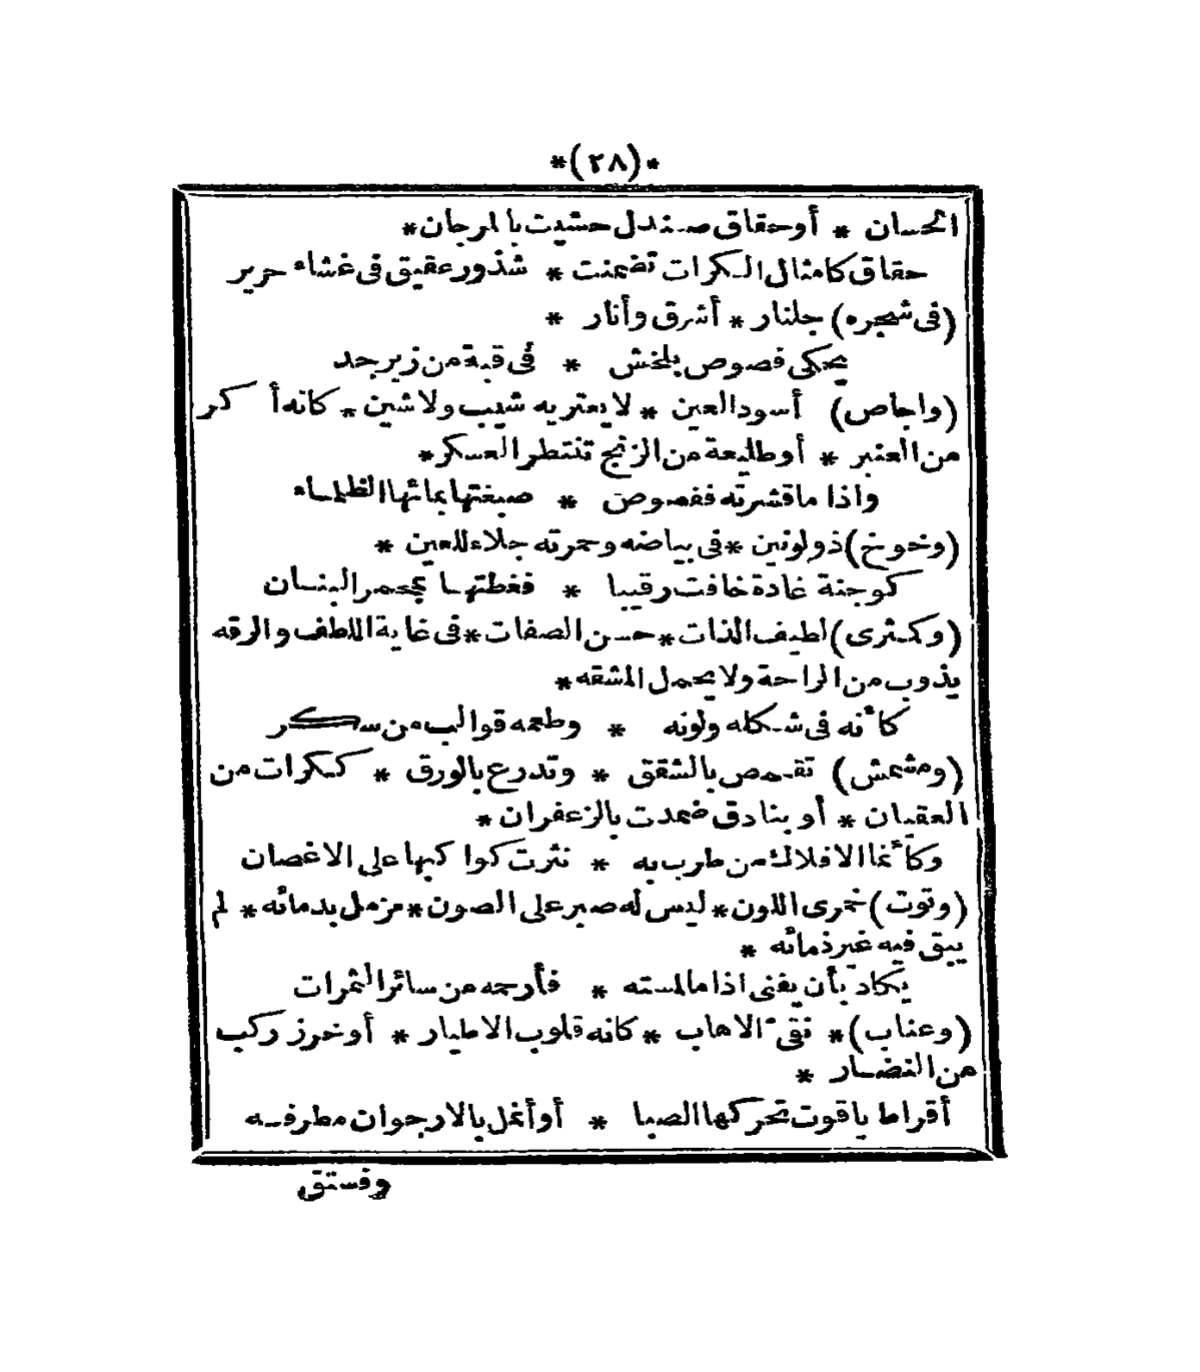 *(٢٨)*
الحسان * أو حقاق صندل حشيت بالمرجان *
حقاق كامثال الكرات تضمنت * شذور عقيق فى غشاء حرير
(فى شجره) جلنار * أشرق وأنار *
يحكى فصوص بلخش * فى قبة من زبرجد
(واجاص) أسود العين * لا يعتريه شيب ولا شين * كانه أكر
من العنبر * أو طليعة من الزنج تنتظر العسكر *
واذا ما قشرته ففصوص * صبغتها بمائها الظلماء
(وخوخ) ذو لونين * فى بياضه وحمرته جلاء للعين *
كوجنة غادة خافت رقيبا * فغطتها بمحمر البنان
(وكمثرى) لطيف الذات * حسن الصفات * فى غاية اللطف والرقه
يذوب من الراحة ولا يحمل المشقه *
كأنه فى شكله ولونه * وطعمه قوالب من سكر
(ومشمش) تقمص بالشقق * وتدرع بالورق * ككرات من
العقيان * أو بنادق ضمدت بالزعفران *
وكأنما الافلاك من طرب به * نثرت كواكبها على الاغصان
(وتوت) خمرى اللون * ليس له صبر على الصون * مزمل بدمائه * لم
يبق فيه غير ذمائه *
يكاد بأن يفنى اذا ما لمسته * فأرحمه من سائر الثمرات
(وعناب) * نقى الاهاب * كانه قلوب الاطيار * أو خرز ركب
من النضار *
أقراط ياقوت تحركها الصبا * أو أنمل بالارجوان مطرفه
وفستق